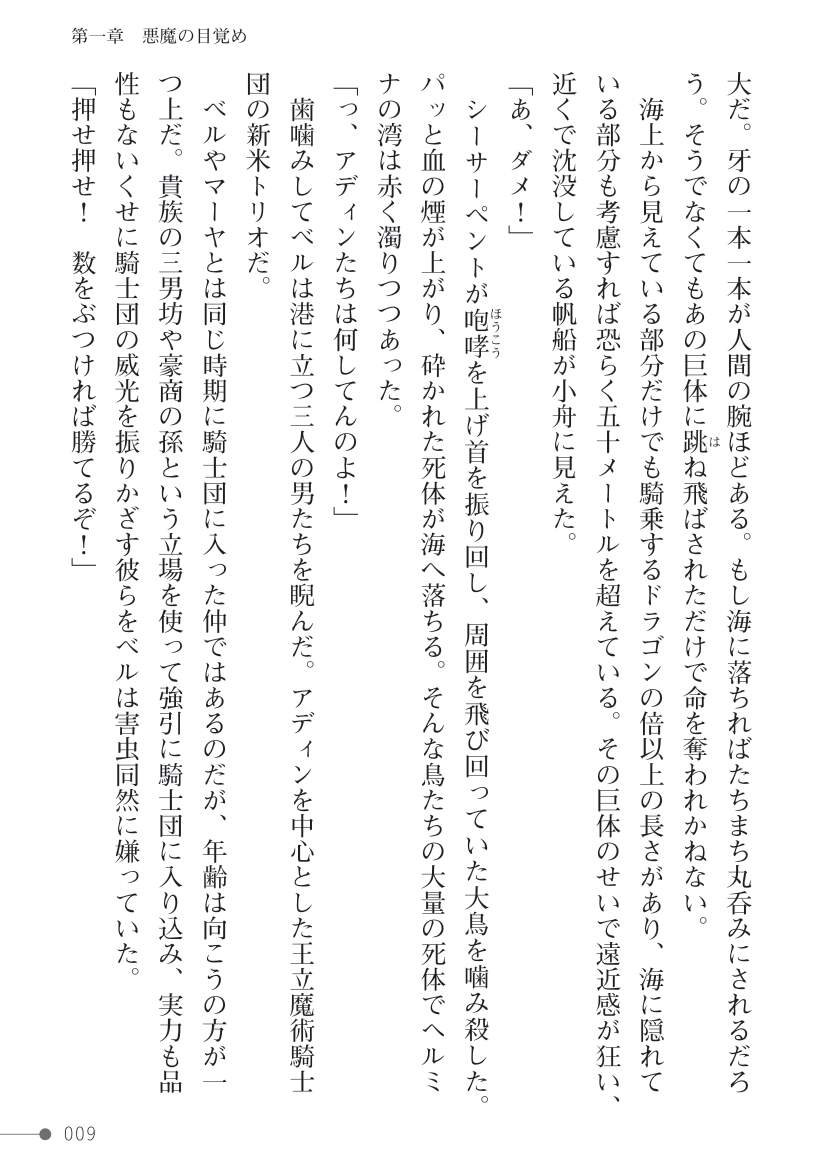 第一章　悪魔の目覚め
大だ。牙の一本一本が人間の腕ほどある。もし海に落ちればたちまち丸呑みにされるだろ
う。そうでなくてもあの巨体に跳ね飛ばされただけで命を奪われかねない。
は
　海上から見えている部分だけでも騎乗するドラゴンの倍以上の長さがあり、海に隠れて
いる部分も考慮すれば恐らく五十メートルを超えている。その巨体のせいで遠近感が狂い、
近くで沈没している帆船が小舟に見えた。
「あ、ダメ！」
　シーサーペントが咆哮を上げ首を振り回し、周囲を飛び回っていた大鳥を噛み殺した。
ほうこう
パッと血の煙が上がり、砕かれた死体が海へ落ちる。そんな鳥たちの大量の死体でヘルミ
ナの湾は赤く濁りつつあった。
「っ、アディンたちは何してんのよ！」
　歯噛みしてベルは港に立つ三人の男たちを睨んだ。アディンを中心とした王立魔術騎士
団の新米トリオだ。
　ベルやマーヤとは同じ時期に騎士団に入った仲ではあるのだが、年齢は向こうの方が一
つ上だ。貴族の三男坊や豪商の孫という立場を使って強引に騎士団に入り込み、実力も品
性もないくせに騎士団の威光を振りかざす彼らをベルは害虫同然に嫌っていた。
「押せ押せ！　数をぶつければ勝てるぞ！」
009